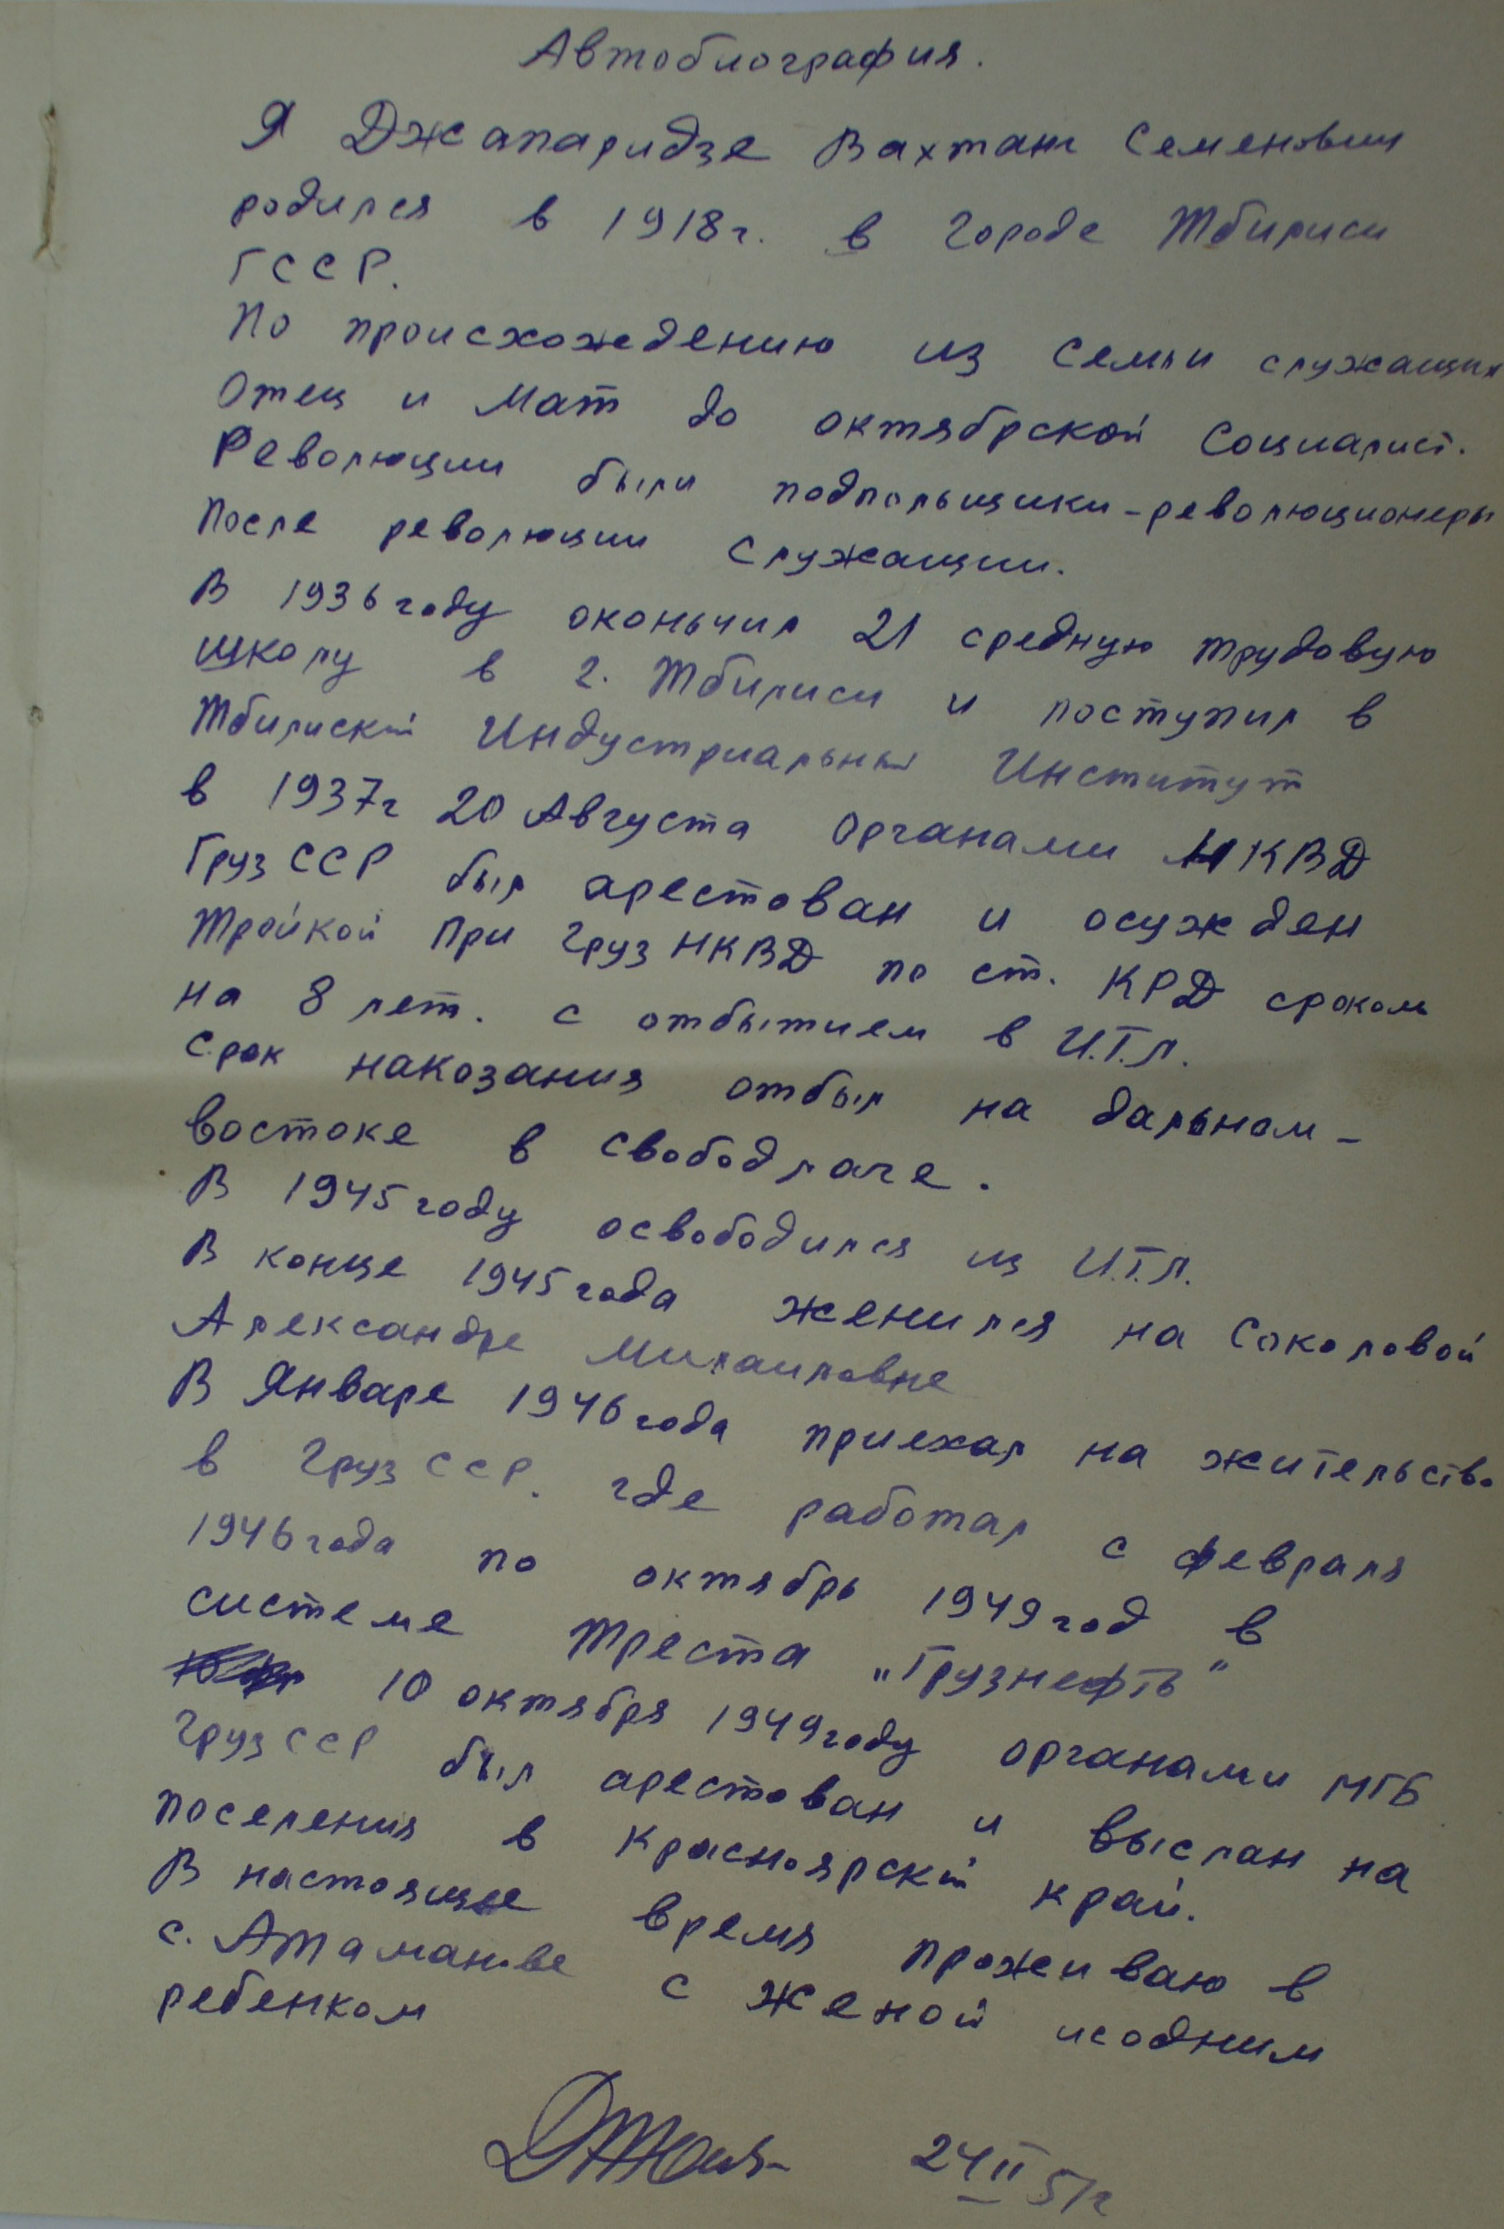 Автобиография.
Я Джапаридзе Вахтанг Семенович
родился в 1918г. в городе Тбилиси
ГССР.
По происхождению из семьи служащих
Отец и мат до октябрской Социалист.
Революции были подпольщики-революционеры
После революции служащии.
В 1936 году оконьчил 21 средную трудовую
школу в г. Тбилиси и поступил в
Тбилиский Индустриальный Институт
в 1937г 20 Августа органами НКВД
Груз ССР был арестован и осужден
Тройкой При Груз НКВД по ст. КРД сроком
на 8 лет. с отбытием в И.Т.Л.
Срок накозания отбыл на дальном-
востоке в свободлаге.
В 1945 году освободился из И.Т.Л.
В конце 1945 года женился на Соколовой
Александре Михаиловне
В Январе 1946 года приехал на жительство
в Груз ССР. где работал с февраля
1946 года по октябрь 1949 год в
системе Треста „Грузнефть"
10 октября 1949 году органами МГБ
Груз ССР был арестован и выслан на
поселения в Красноярский край.
В настоящее время проживаю в
с. Атаманове с женой и содним
ребенком
24 II 51г